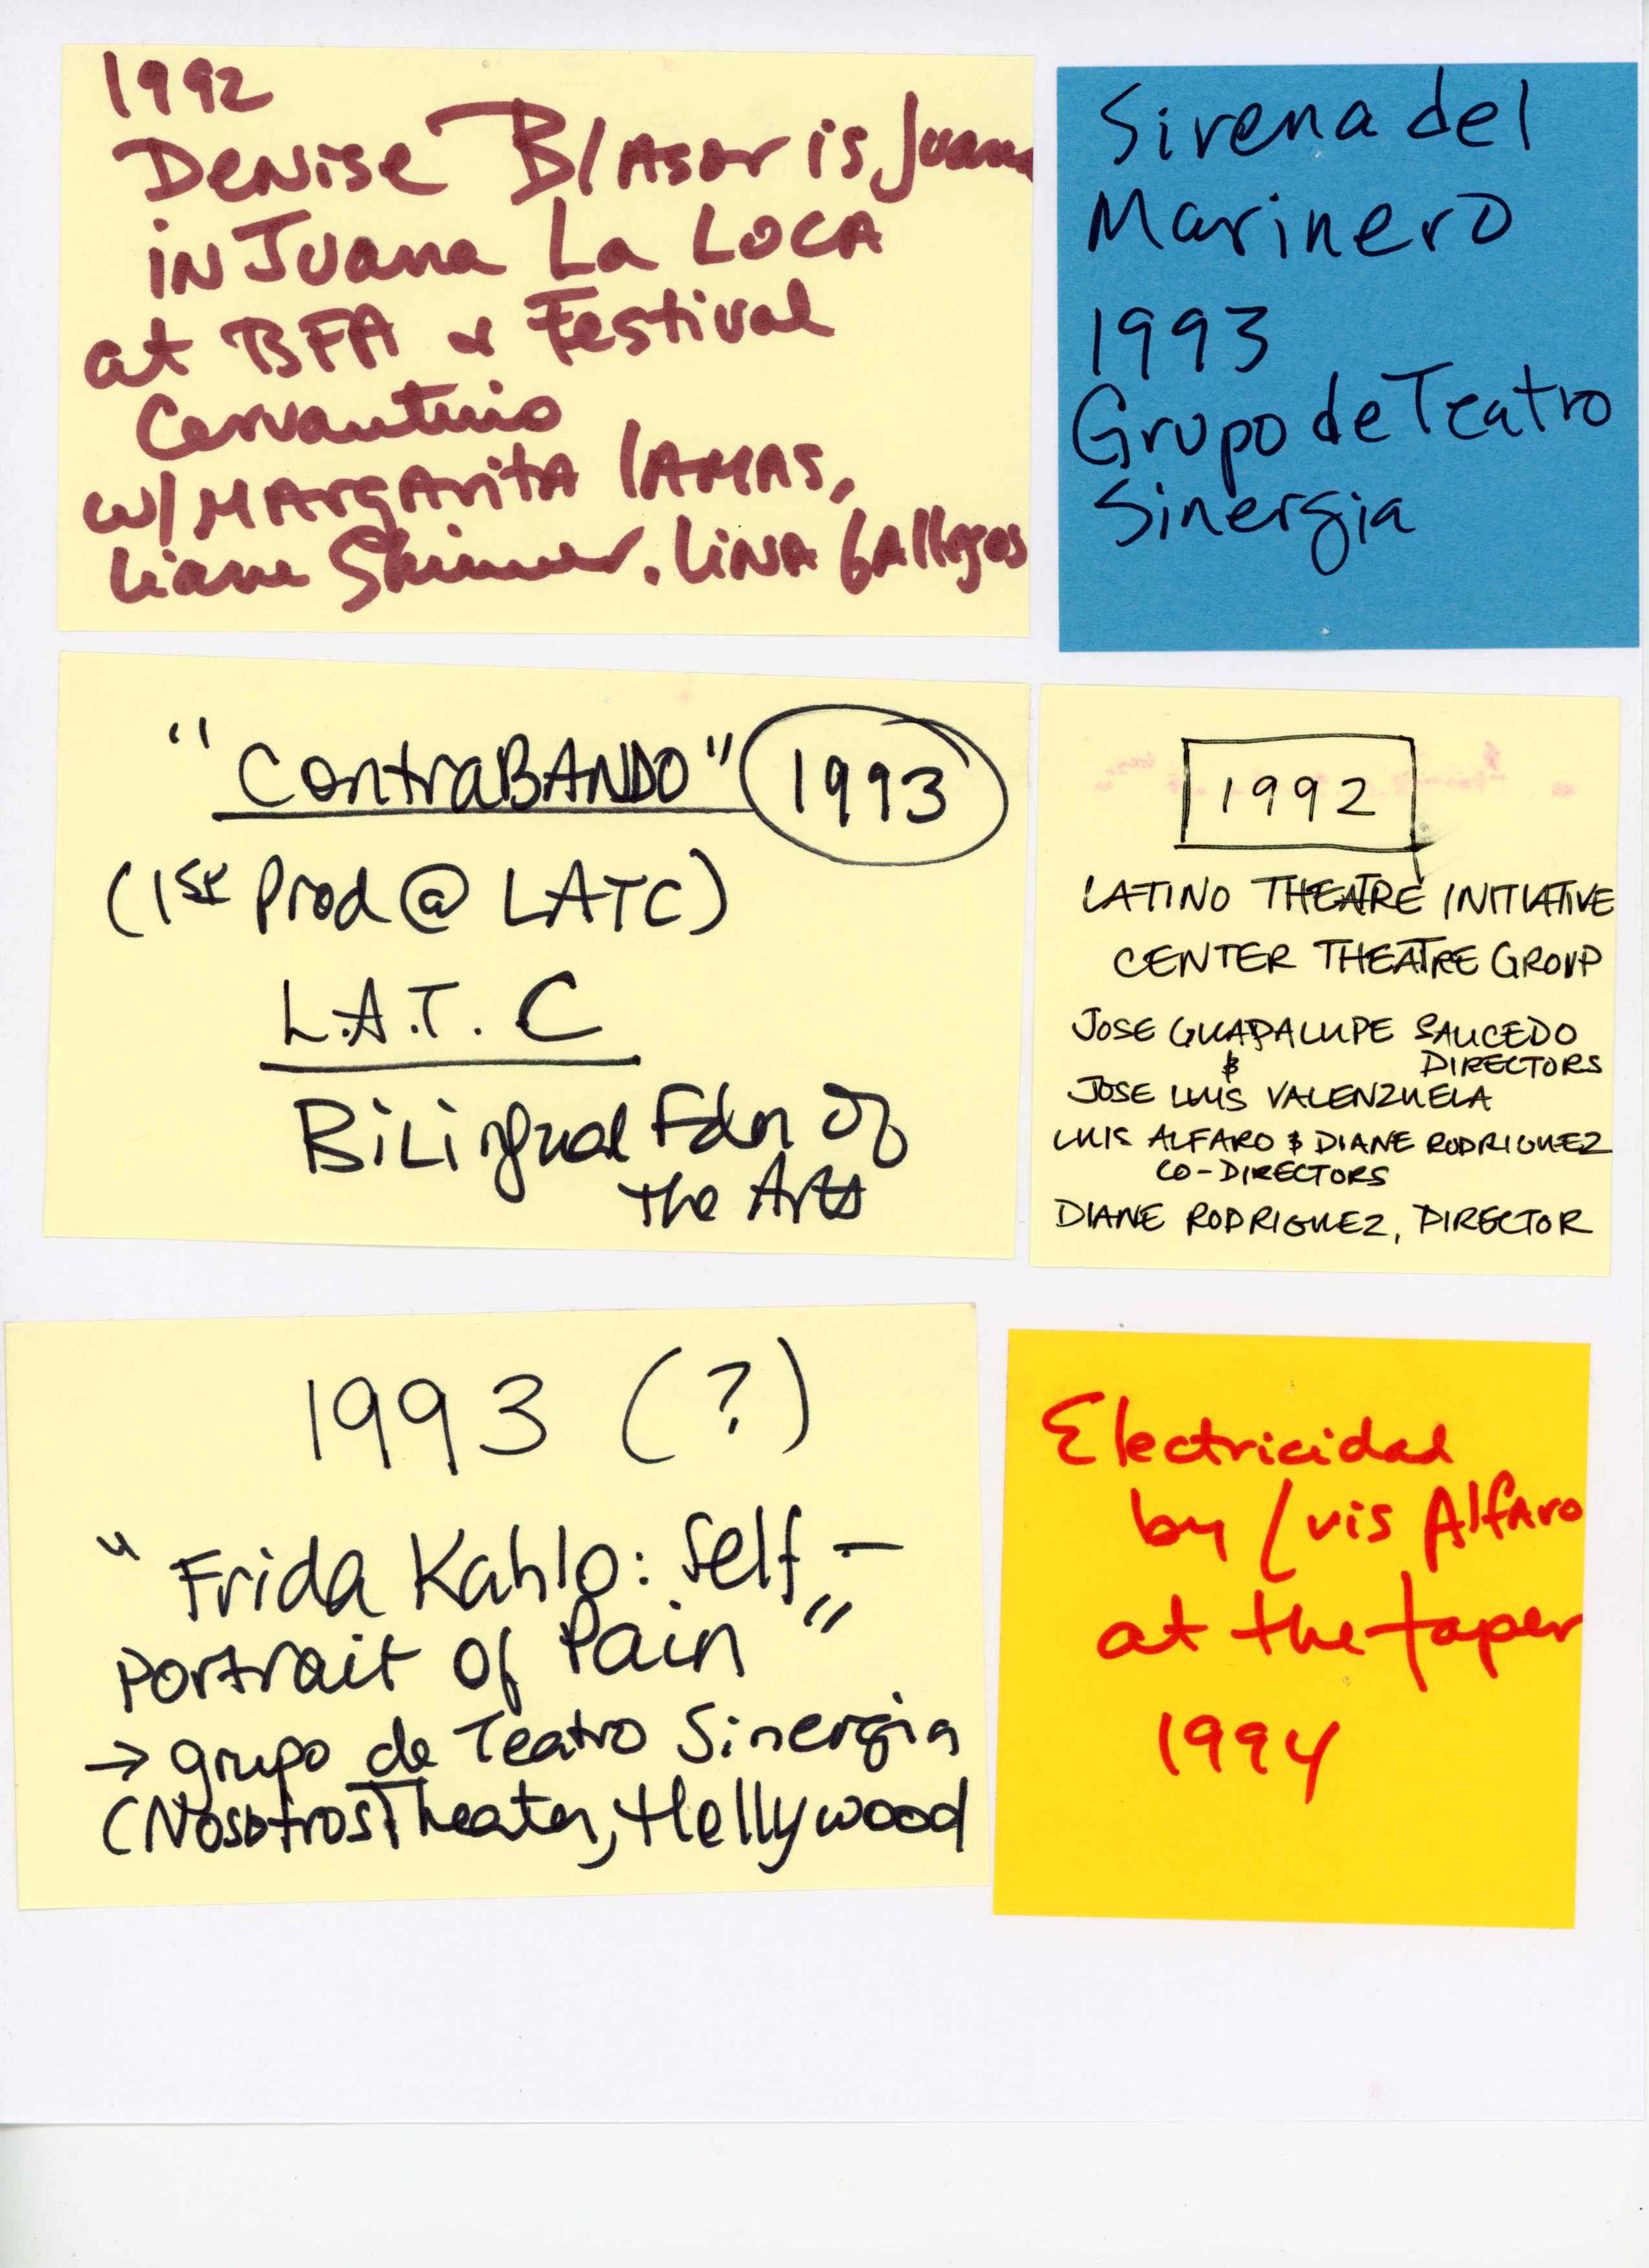 1992
Denise Blasor is Juana
in Juana La Loca
at BFA & Festival
Cervantino
w/ Margarita Lamas,
Liane Skinner. Lina Gallegos
Sirena del
Marinero
1993
Grupo de Teatro
Sinergia
"ContraBANDO" 1993
(1st Prod @ LATC)
L.A.T.C
BiLingual Fdn Of
the Arts
1992
LATINO THEATRE INITIATIVE
CENTER THEATRE GROUP
JOSE GUADALUPE SAUCEDO
& DIRECTORS
JOSE LUIS VALENZUELA
LUIS ALFARO & DIANE RODRIGUEZ
CO-DIRECTORS
DIANE RODRIGUEZ, DIRECTOR
1993 (?)
"Frida Kahlo: Self-
Portrait of Pain"
→ grupo de Teatro Sinergia
(Nosotros Theater, Hollywood
Electricidad
by Luis Alfaro
at the taper
1994